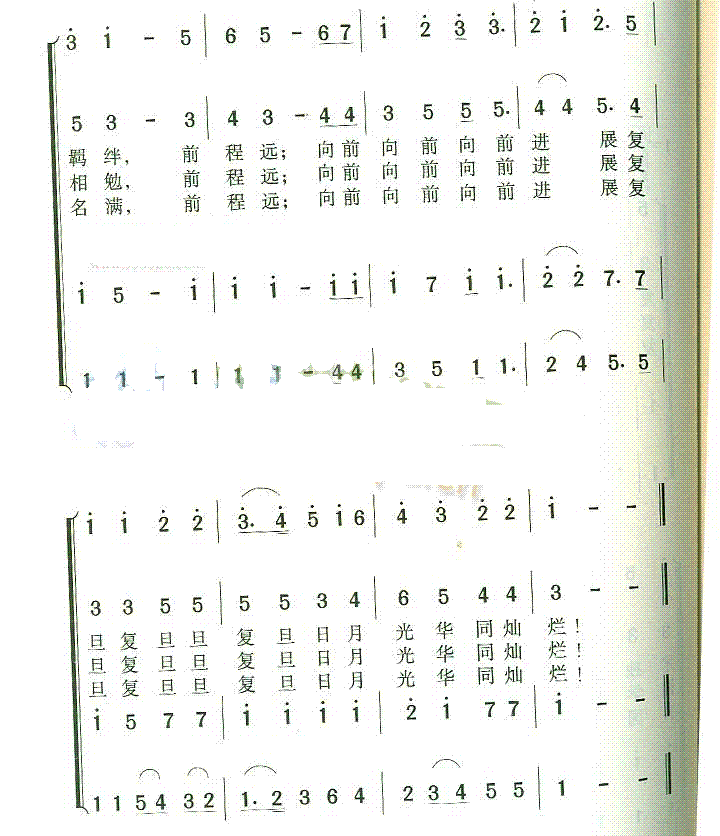 3̇ 1̇ - 5 | 6 5 - 6 7 | 1̇ 2̇ 3̇ 3̇. | 2̇ 1̇ 2̇. 5 |
5 3 - 3 | 4 3 - 4 4 | 3 5 5 5. | 4 4 5. 4 |
羁 绊, 前 程 远; 向前 向 前 向 前 进 展 复
相 勉, 前 程 远; 向前 向 前 向 前 进 展 复
名 满, 前 程 远; 向前 向 前 向 前 进 展 复
1̇ 5 - 1̇ | 1̇ 1̇ - 1̇ 1̇ | 1̇ 7 1̇ 1̇. | 2̇ 2̇ 7. 7 |
1 1 - 1 | 1 1 - 4 4 | 3 5 1 1. | 2 4 5. 5 |
1̇ 1̇ 2̇ 2̇ | 3̇. 4̇ 5̇ 1̇ 6 | 4̇ 3̇ 2̇ 2̇ | 1̇ - - ‖
3 3 5 5 | 5 5 3 4 | 6 5 4 4 | 3 - - ‖
旦 复 旦 旦 复 旦 日 月 光 华 同 灿 烂!
旦 复 旦 旦 复 旦 日 月 光 华 同 灿 烂!
旦 复 旦 旦 复 旦 日 月 光 华 同 灿 烂!
1̇ 5 7 7 | 1̇ 1̇ 1̇ 1̇ | 2̇ 1̇ 7 7 | 1̇ - - ‖
1 1 5 4 3 2 | 1. 2 3 6 4 | 2 3 4 5 5 | 1 - - ‖